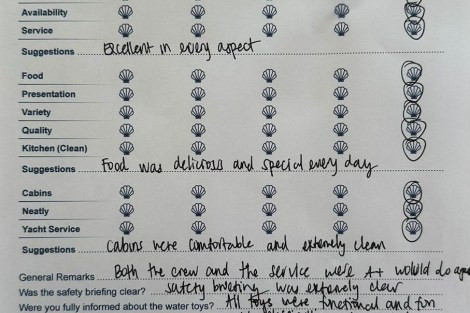 Availability
Service
Suggestions Excellent in every aspect
Food
Presentation
Variety
Quality
Kitchen (Clean)
Suggestions Food was delicious and special every day
Cabins
Neatly
Yacht Service
Suggestions Cabins were comfortable and extremely clean
General Remarks Both the crew and the service were A+ would do
Was the safety briefing clear? safety briefing was extremely clear
Were you fully informed about the water toys? All toys were functional and fun